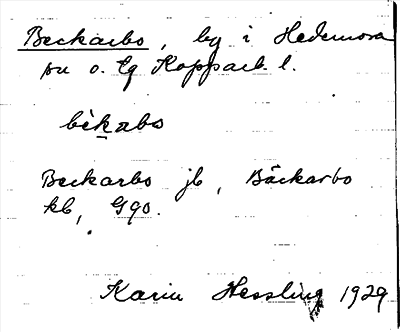 Beckarbo, by i Hedemora
sn o. tg Kopparb. l.
bèkabo
Beckarbo jb, Bäckarbo
kb, G90.
Karin Hessling 1929